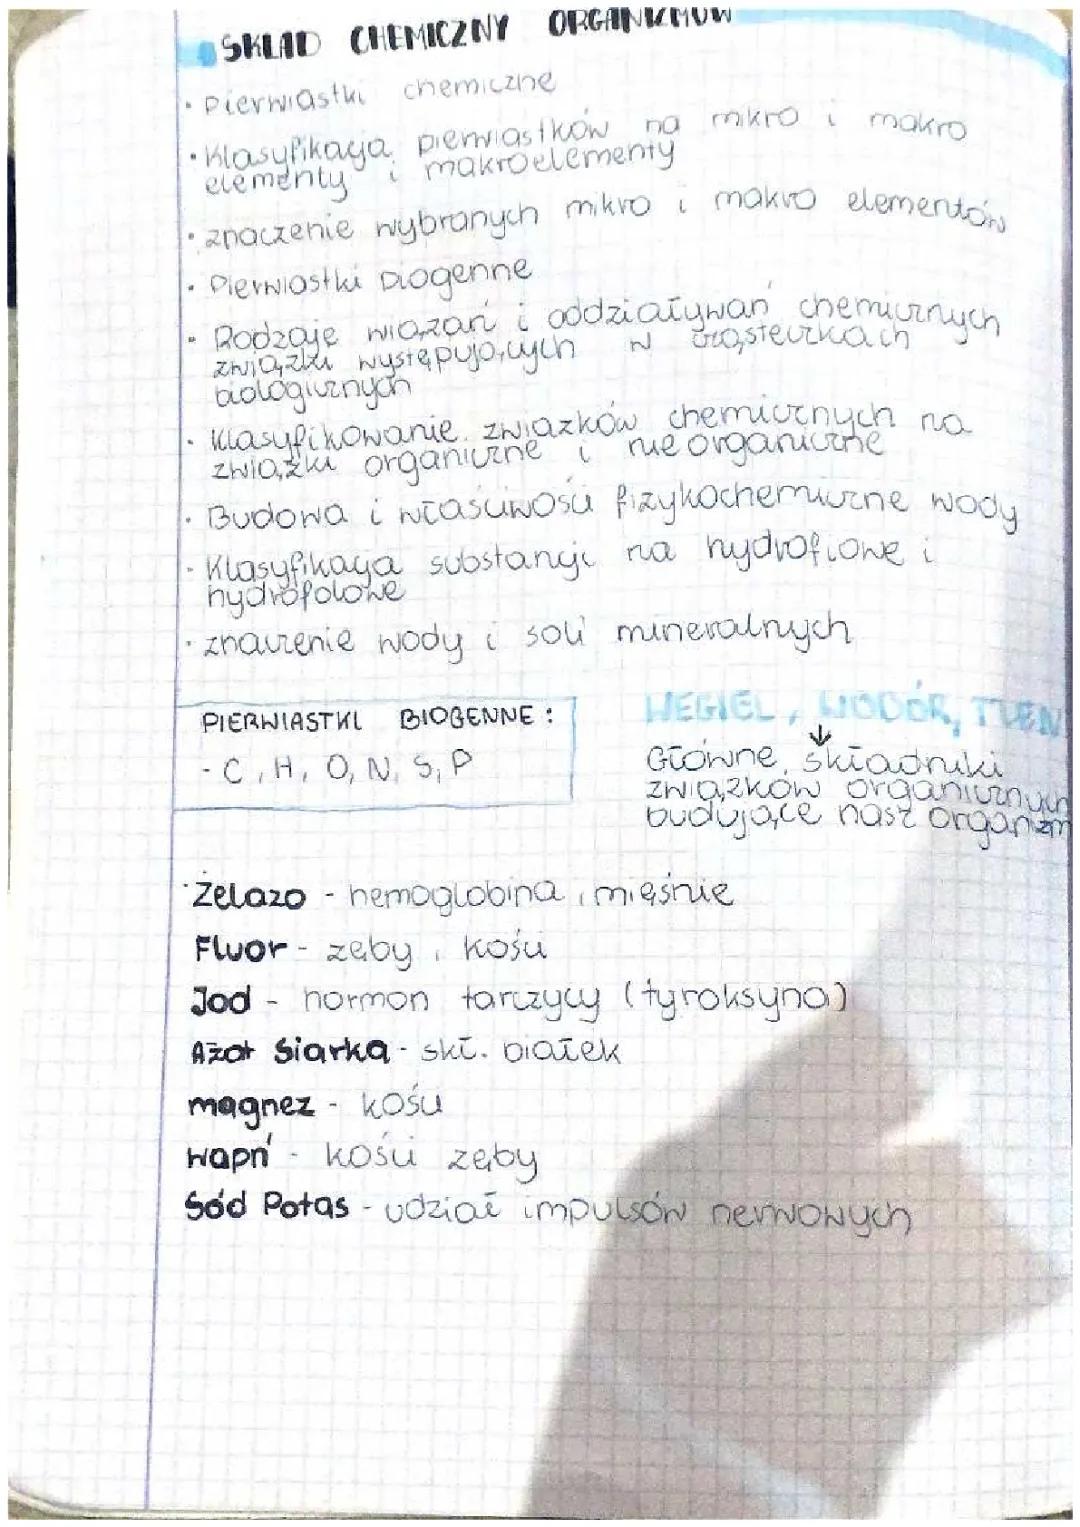 SKŁAD CHEMICZNY ORGANIZMÓW
• Pierwiastki chemiczne
• Klasyfikacja pierwiastków na mikro i makro
elementy i makroelementy
• znaczenie wybranych mikro i makro elementów
• Pierwiastki biogenne
• Rodzaje wiązań i oddziaływań chemicznych
związki występujących w cząsteczkach
biologicznych
• Klasyfikowanie związków chemicznych na
związki organiczne i nieorganiczne
• Budowa i właściwości fizykochemiczne wody
• Klasyfikacja substancji na hydrofilowe i
hydrofobowe
• znaczenie wody i soli mineralnych
PIERWIASTKI BIOGENNE:
- C, H, O, N, S, P
WĘGIEL, WODÓR, TLEN
↓
Główne składniki
związków organicznych
budujące nasz organizm
• Żelazo - hemoglobina, mięśnie
Fluor - zęby, kości
Jod - hormon tarczycy (tyroksyna)
Azot Siarka - skł. białek
magnez - kości
wapń - kości zęby
Sód Potas - udział impulsów nerwowych